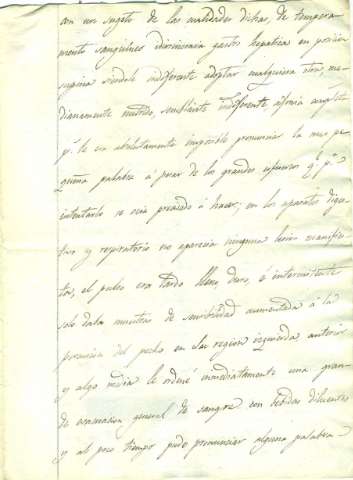 con un sugeto de las cualidades dichas, de tempera-
mento sanguineo idiosincracia gastro hepatica en posicion
supina siendole indiferente adoptar cualquiera otra, me-
dianamente nutrido, semblante indiferente afonia completa
pr. le era absolutamente imposible pronunciar la mas pe-
queña palabra a pesar de los grandes esfuerzos qe. pa.
intentarlo se veia precisado á hacer; en los aparatos diges-
tivo y respiratorio no aparecia ninguna lesion manifies-
ta, el pulso era tardo lleno, duro, é intermitente
solo daba muestras de sensibilidad aumentada á la
presion del pecho en la region izquierda anterior
y algo media le ordené inmediatamente una gran-
de evacuacion general de sangre con bebidas diluentes
y al poco tiempo pudo pronunciar alguna palabra